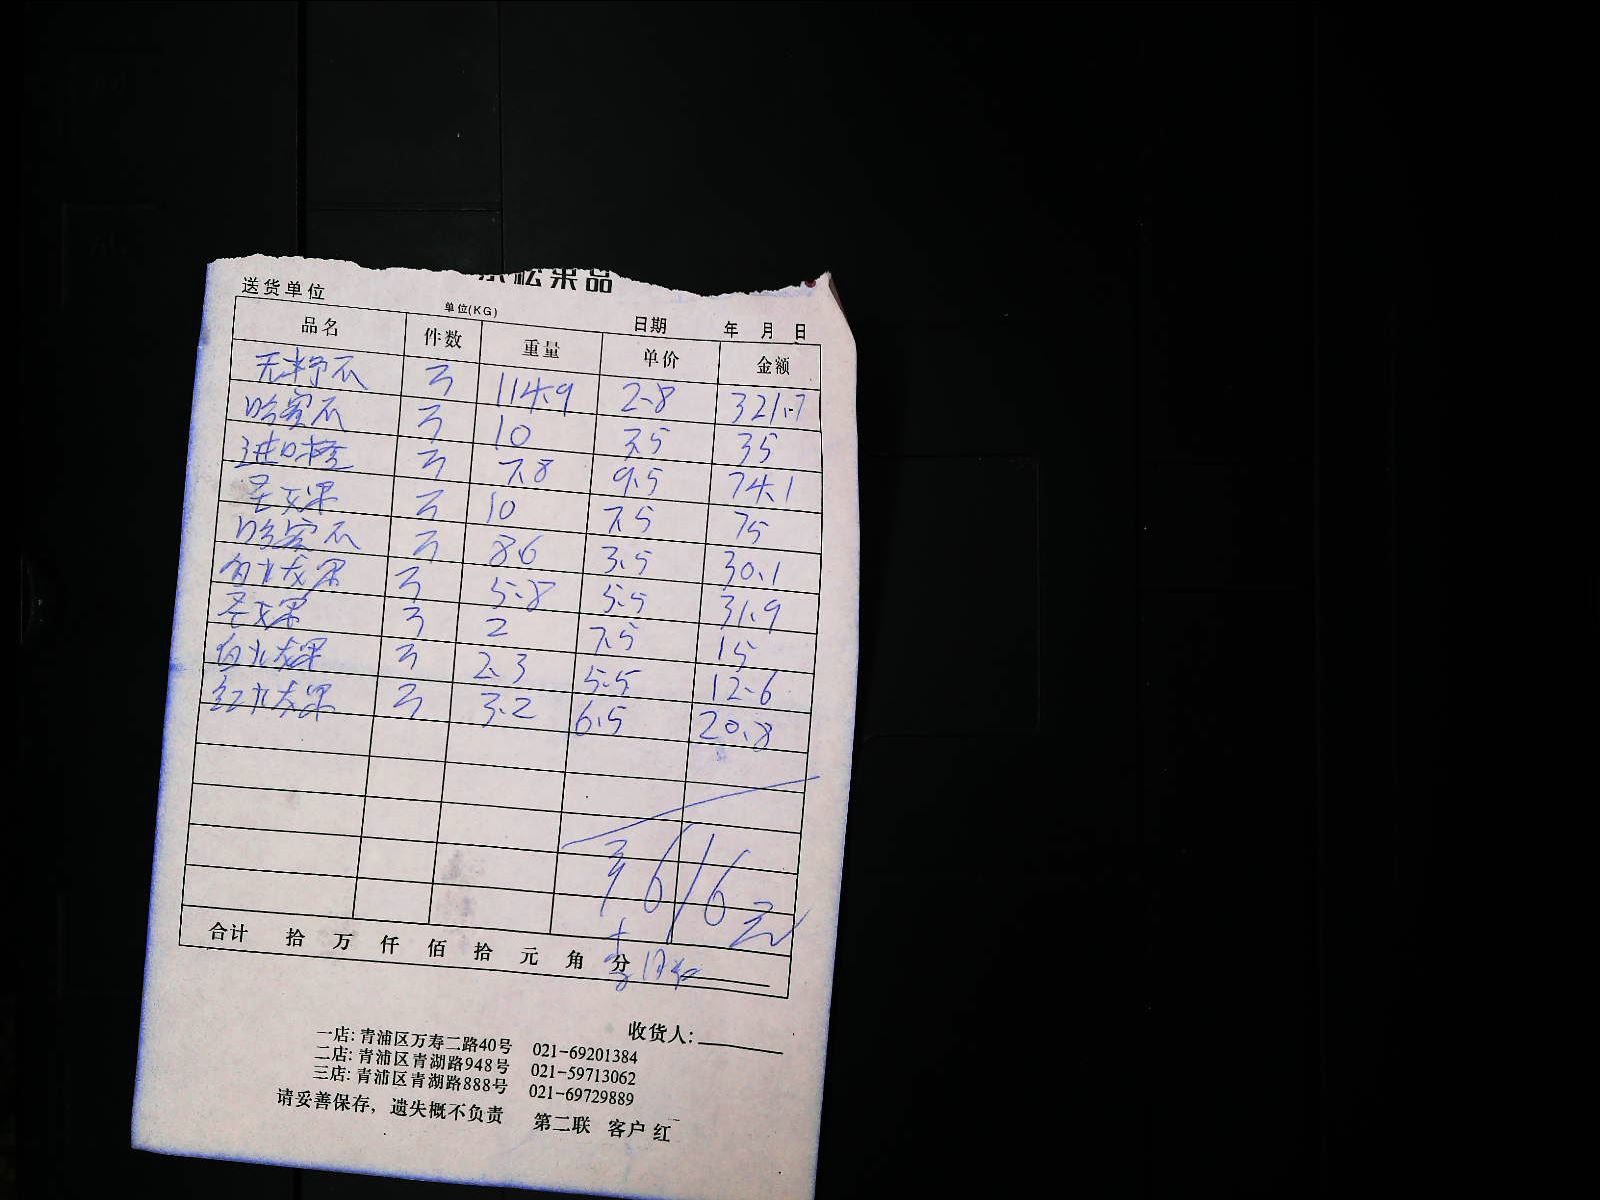 松果品
送货单位
单位(KG)
日期 年 月 日
品名 件数 重量 单价 金额
无籽西瓜 114.9 2.8 321.7
哈密瓜 10 3.5 35
进口橙 7.8 9.5 74.1
圣女果 10 7.5 75
哈密瓜 8.6 3.5 30.1
白火龙果 5.8 5.5 31.9
圣女果 2 7.5 15
白火龙果 2.3 5.5 12.6
红火龙果 3.2 6.5 20.8
¥616元
合计 拾 万 仟 佰 拾 元 角 分
收货人:
一店: 青浦区万寿二路40号 021-69201384
二店: 青浦区青湖路948号 021-59713062
三店: 青浦区青湖路888号 021-69729889
请妥善保存，遗失概不负责 第二联 客户 红